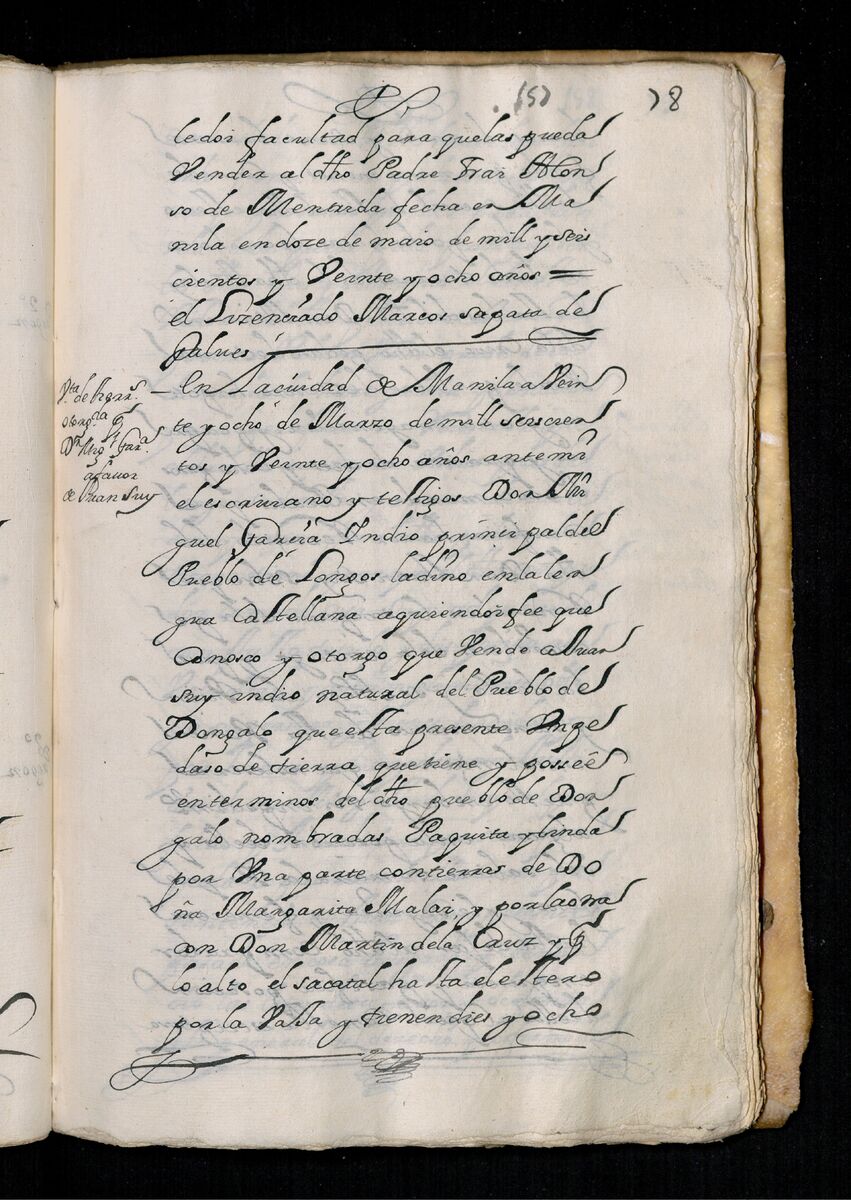 (5)
78
le doi facultad para que las pueda
Vender al dho Padre Frai Alon
so de Mentrida fecha en Ma
nila en doze de maio de mill y seis
cientos y Veinte y ocho años =
el Lizenciado Marcos sapata de
Galues
Vta. de tierrs.
otorgda. p
Dn. Migl. Gara.
a fauor
de Juan Suy
En La ciudad de Manila a Vein
te y ocho de Marzo de mill seiscien
tos y Veinte y ocho años ante mi
el escriuano y testigos Don Mi
guel Garcia Indio principal del
Pueblo de Longos ladino en la len
gua Castellana a quien doi fee que
Conosco y otorgo que Vende a Juan
Suy indio natural del Pueblo de
Dongalo que esta presente Vn pe
daso de tierra que tiene y possee
en terminos del dho pueblo de Don
galo nombradas Paquita y linda
por Vna parte con tierras de Do
ña Margarita Malai, y por la otra
con Don Martin de la Cruz y p
lo alto el sacatal hasta el estero
por la Vaja y tienen dies y ocho